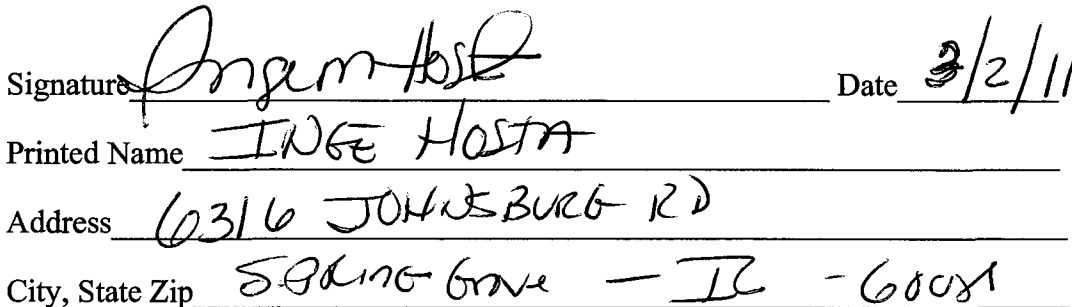 Signature Inge m Hosta Date 3/2/11
Printed Name INGE HOSTA
Address 6316 JOHNSBURG RD
City, State Zip SPRING Grove - IL - 60081